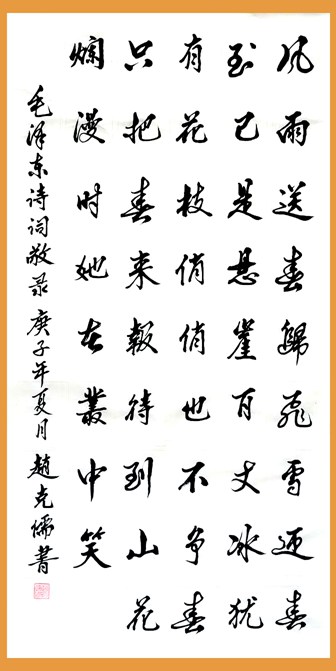 风雨送春歸飛雪迎春
到已是悬崖百丈冰犹
有花枝俏俏也不争春
只把春来報待到山花
爛漫时她在叢中笑
毛泽东诗词敬录 庚子年夏月 趙克儒書